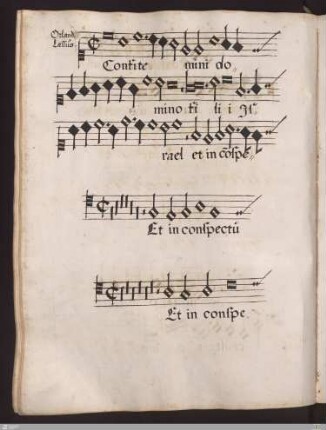 Orland
Lassus.
Confite mini do
mino fi li i Is
rael et in cōspe
Et in conspectū
Et in conspe